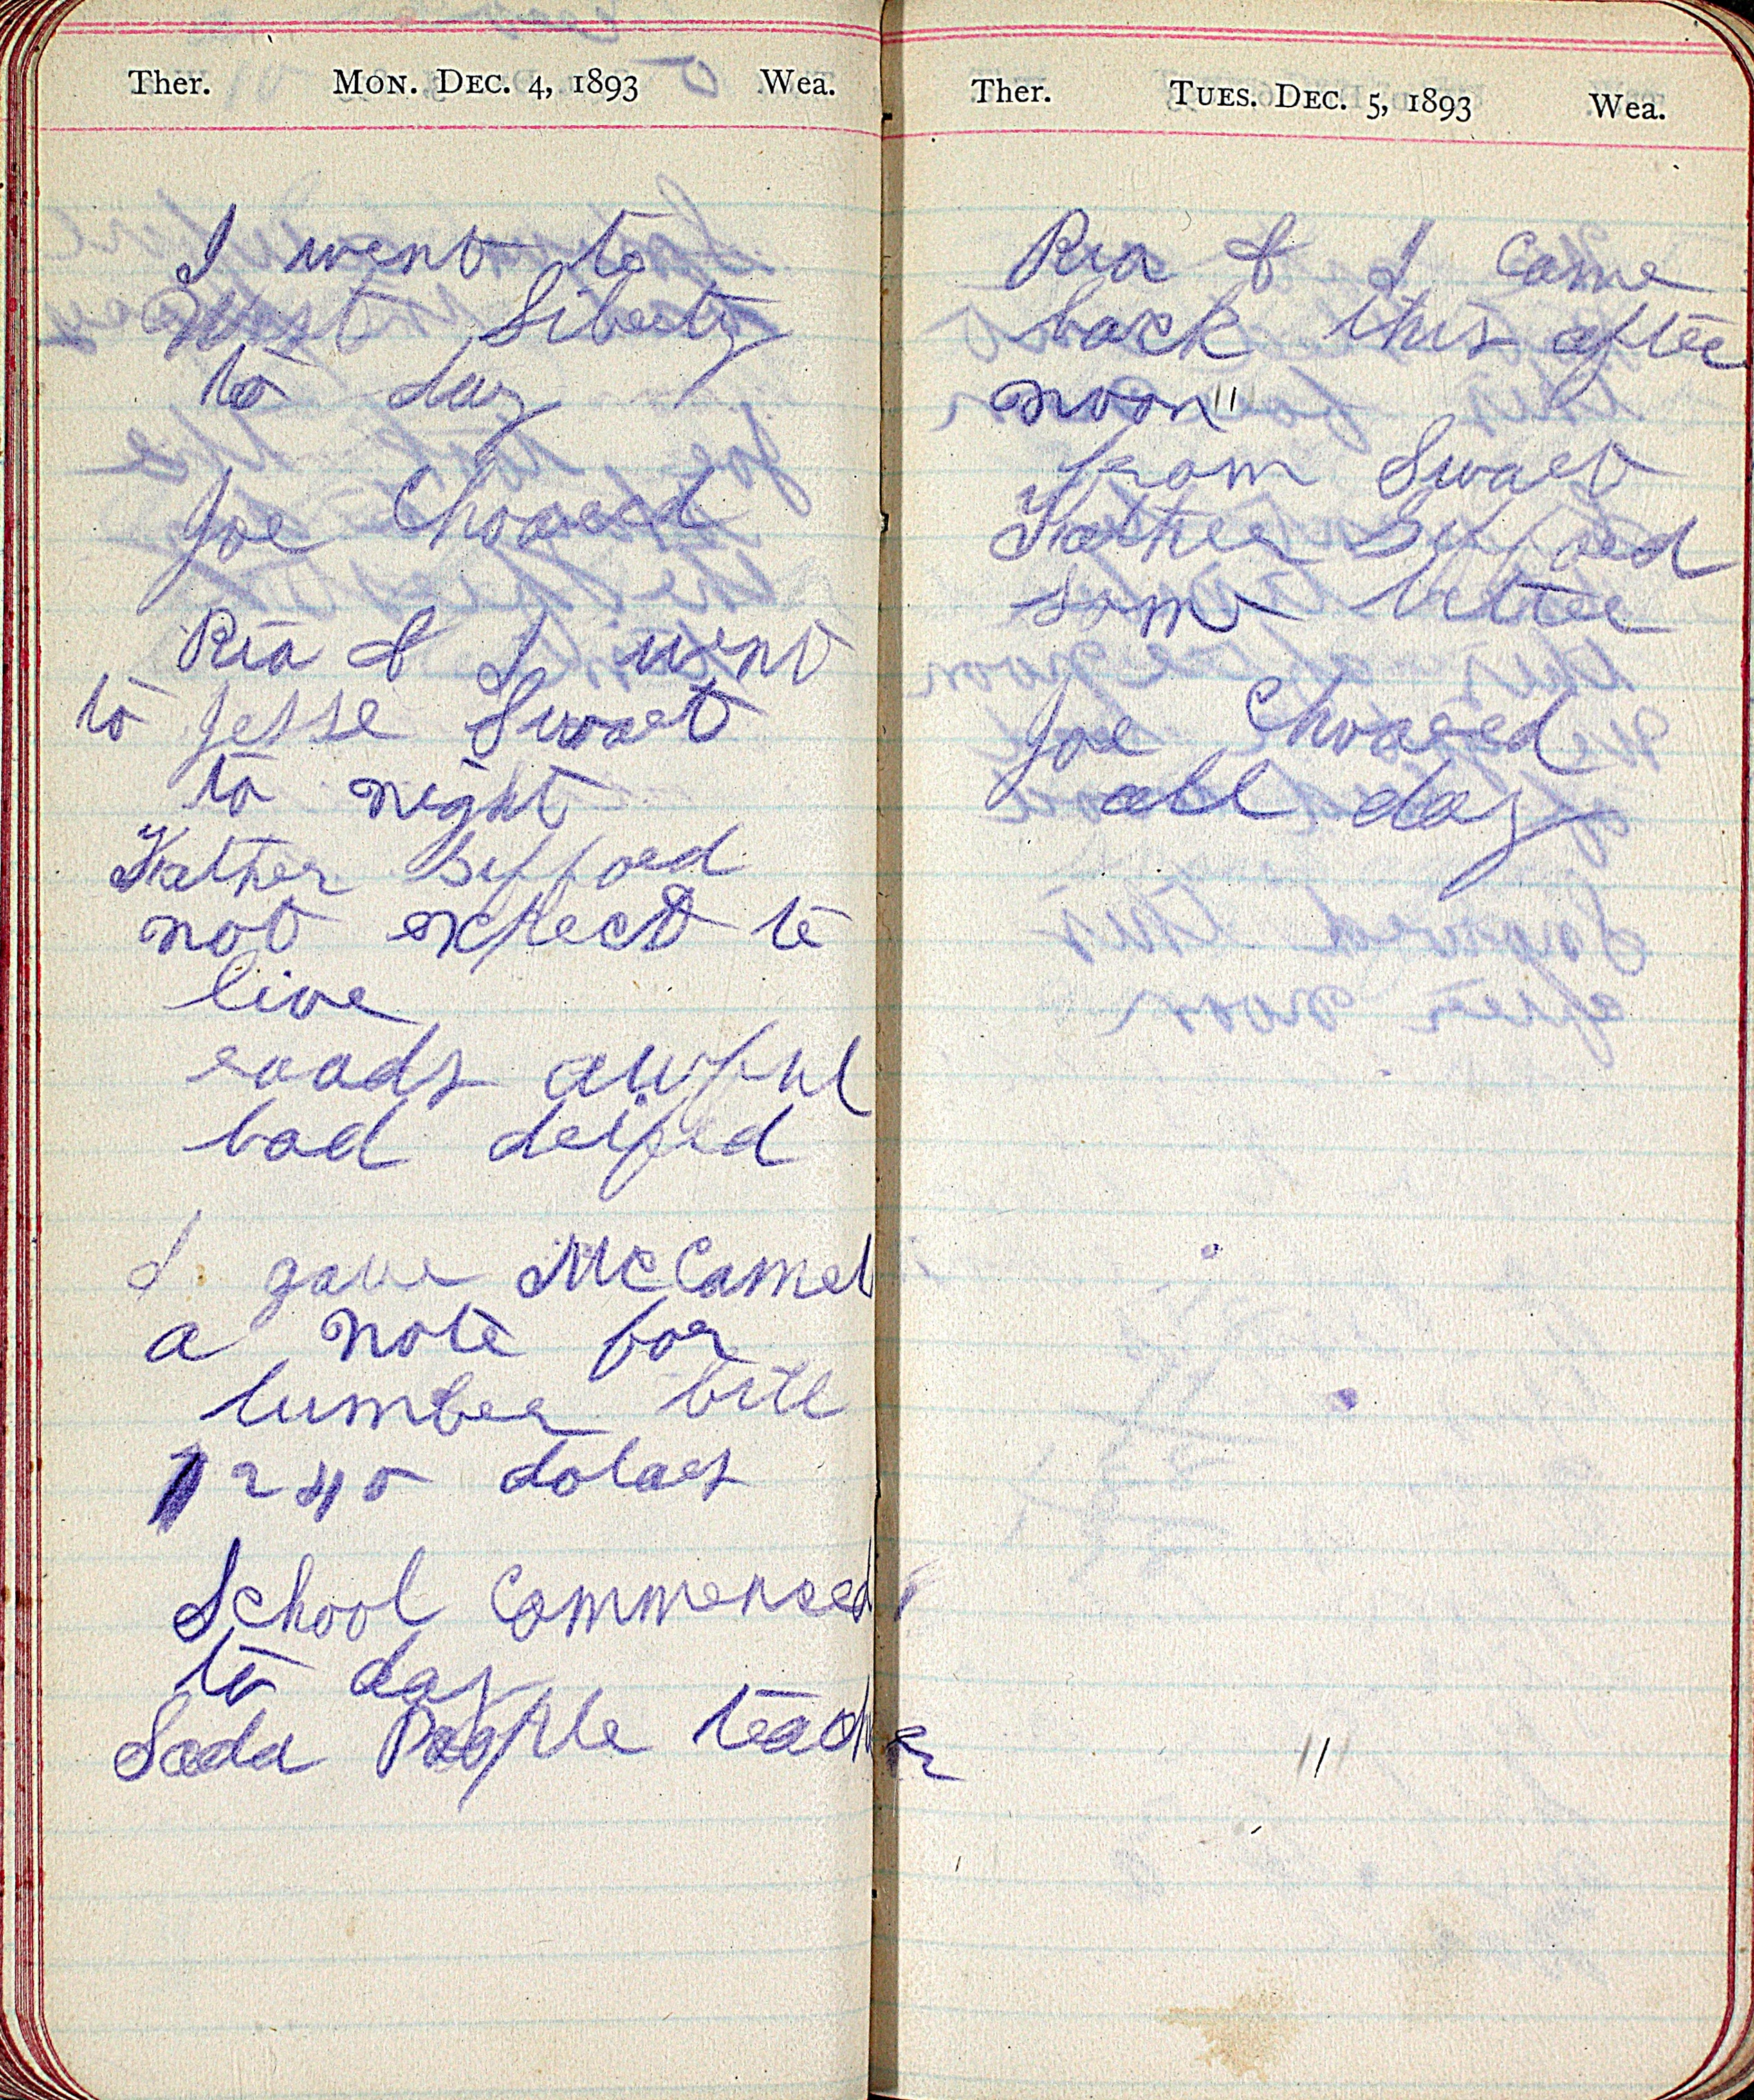 Ther. MON. DEC. 4, 1893 Wea.
I went to
West Liberty
to day
Joe Chored
Ria & I went
to Jesse Swart
to night
Father Gifford
not expect to
live
roads awful
bad drifed
I gave McCamel
a note for
lumber bill
240 dolars
School Commenced
to day
Sada Poople teacher
Ther. TUES. DEC. 5, 1893 Wea.
Ria & I Came
back this after
noon
from Swart
Father Gifford
some better
Joe Chored
all day